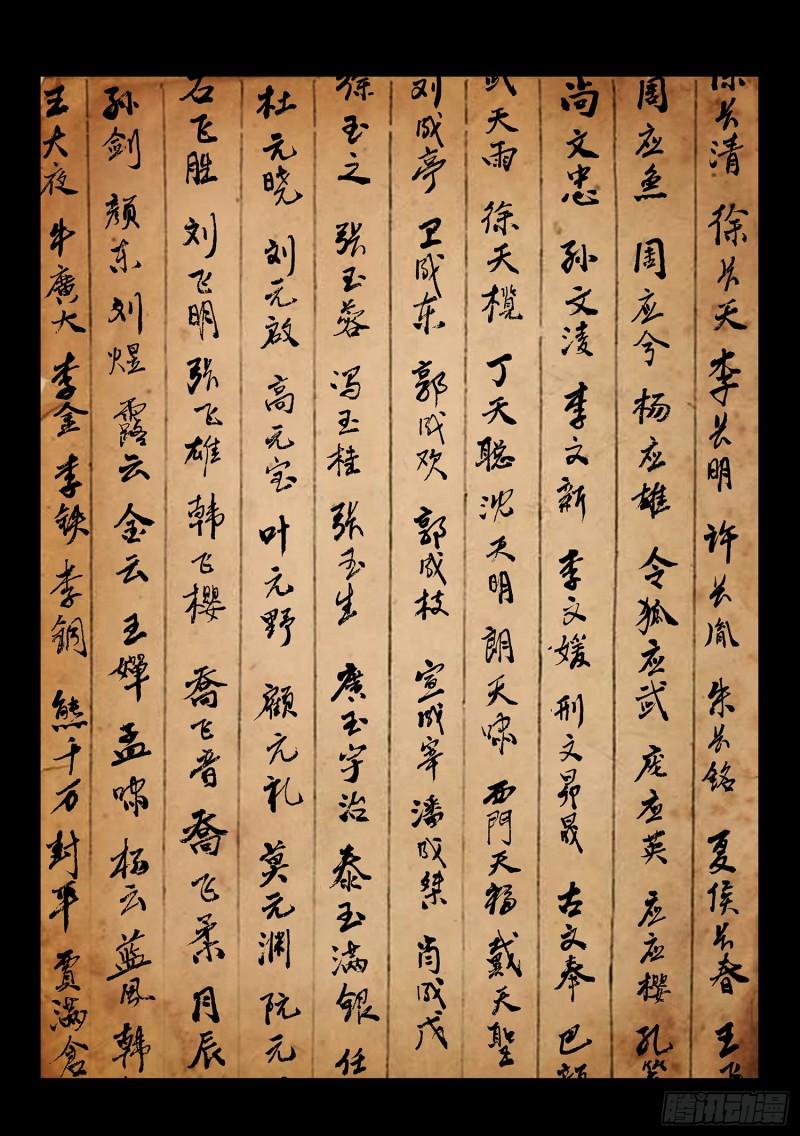 徐长清 徐长天 李长明 许长胤 朱长铭 夏侯长春 王飞
周应鱼 周应兮 杨应雄 令狐应武 庞应英 应应樱 孔笑
尚文忠 孙文凌 李文新 李文媛 刑文昴晟 古文奉 巴颜
武天雨 徐天榄 丁天聪 沈天明 朗天啸 西門天福 戴天聖
刘成亭 卫成东 郭成欢 郭成枝 宣成宰 潘成桀 肖成戊
徐玉之 张玉蓉 冯玉桂 张玉生 廣玉宇治 泰玉满银 任
杜元晓 刘元啟 高元宝 叶元野 顧元礼 莫元渊 阮元
石飞胜 刘飞明 張飞雄 韩飞樱 喬飞音 喬飞柔 月辰
孙剑 颜东 刘煜 露云 金云 王婵 孟啸 杨云 蓝凤 韩
王大夜 牛廣大 李金 李铁 李铜 熊千万 封平 賈满倉
腾讯动漫